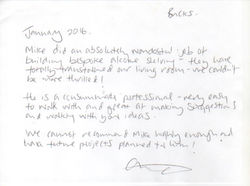 Bricks.
January 2016.
Mike did an absolutely wonderful job of
building bespoke alcove shelving - they have
totally transformed our living room - we couldn't
be more thrilled!
He is a consummate professional - very easy
to work with and great at making suggestions
and working with your ideas.
We cannot recommend Mike highly enough and
have future projects planned for him!